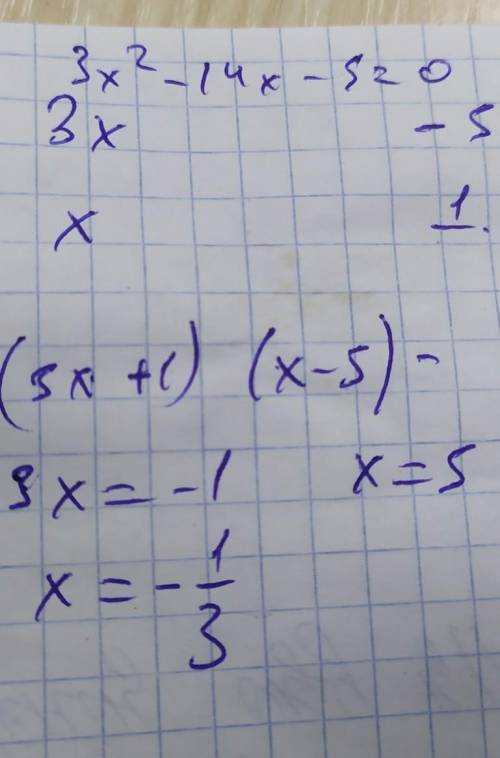 3x² - 14x - 5 = 0
3x - 5
x 1
(3x + 1) (x - 5) -
3x = -1 x = 5
x = -1/3